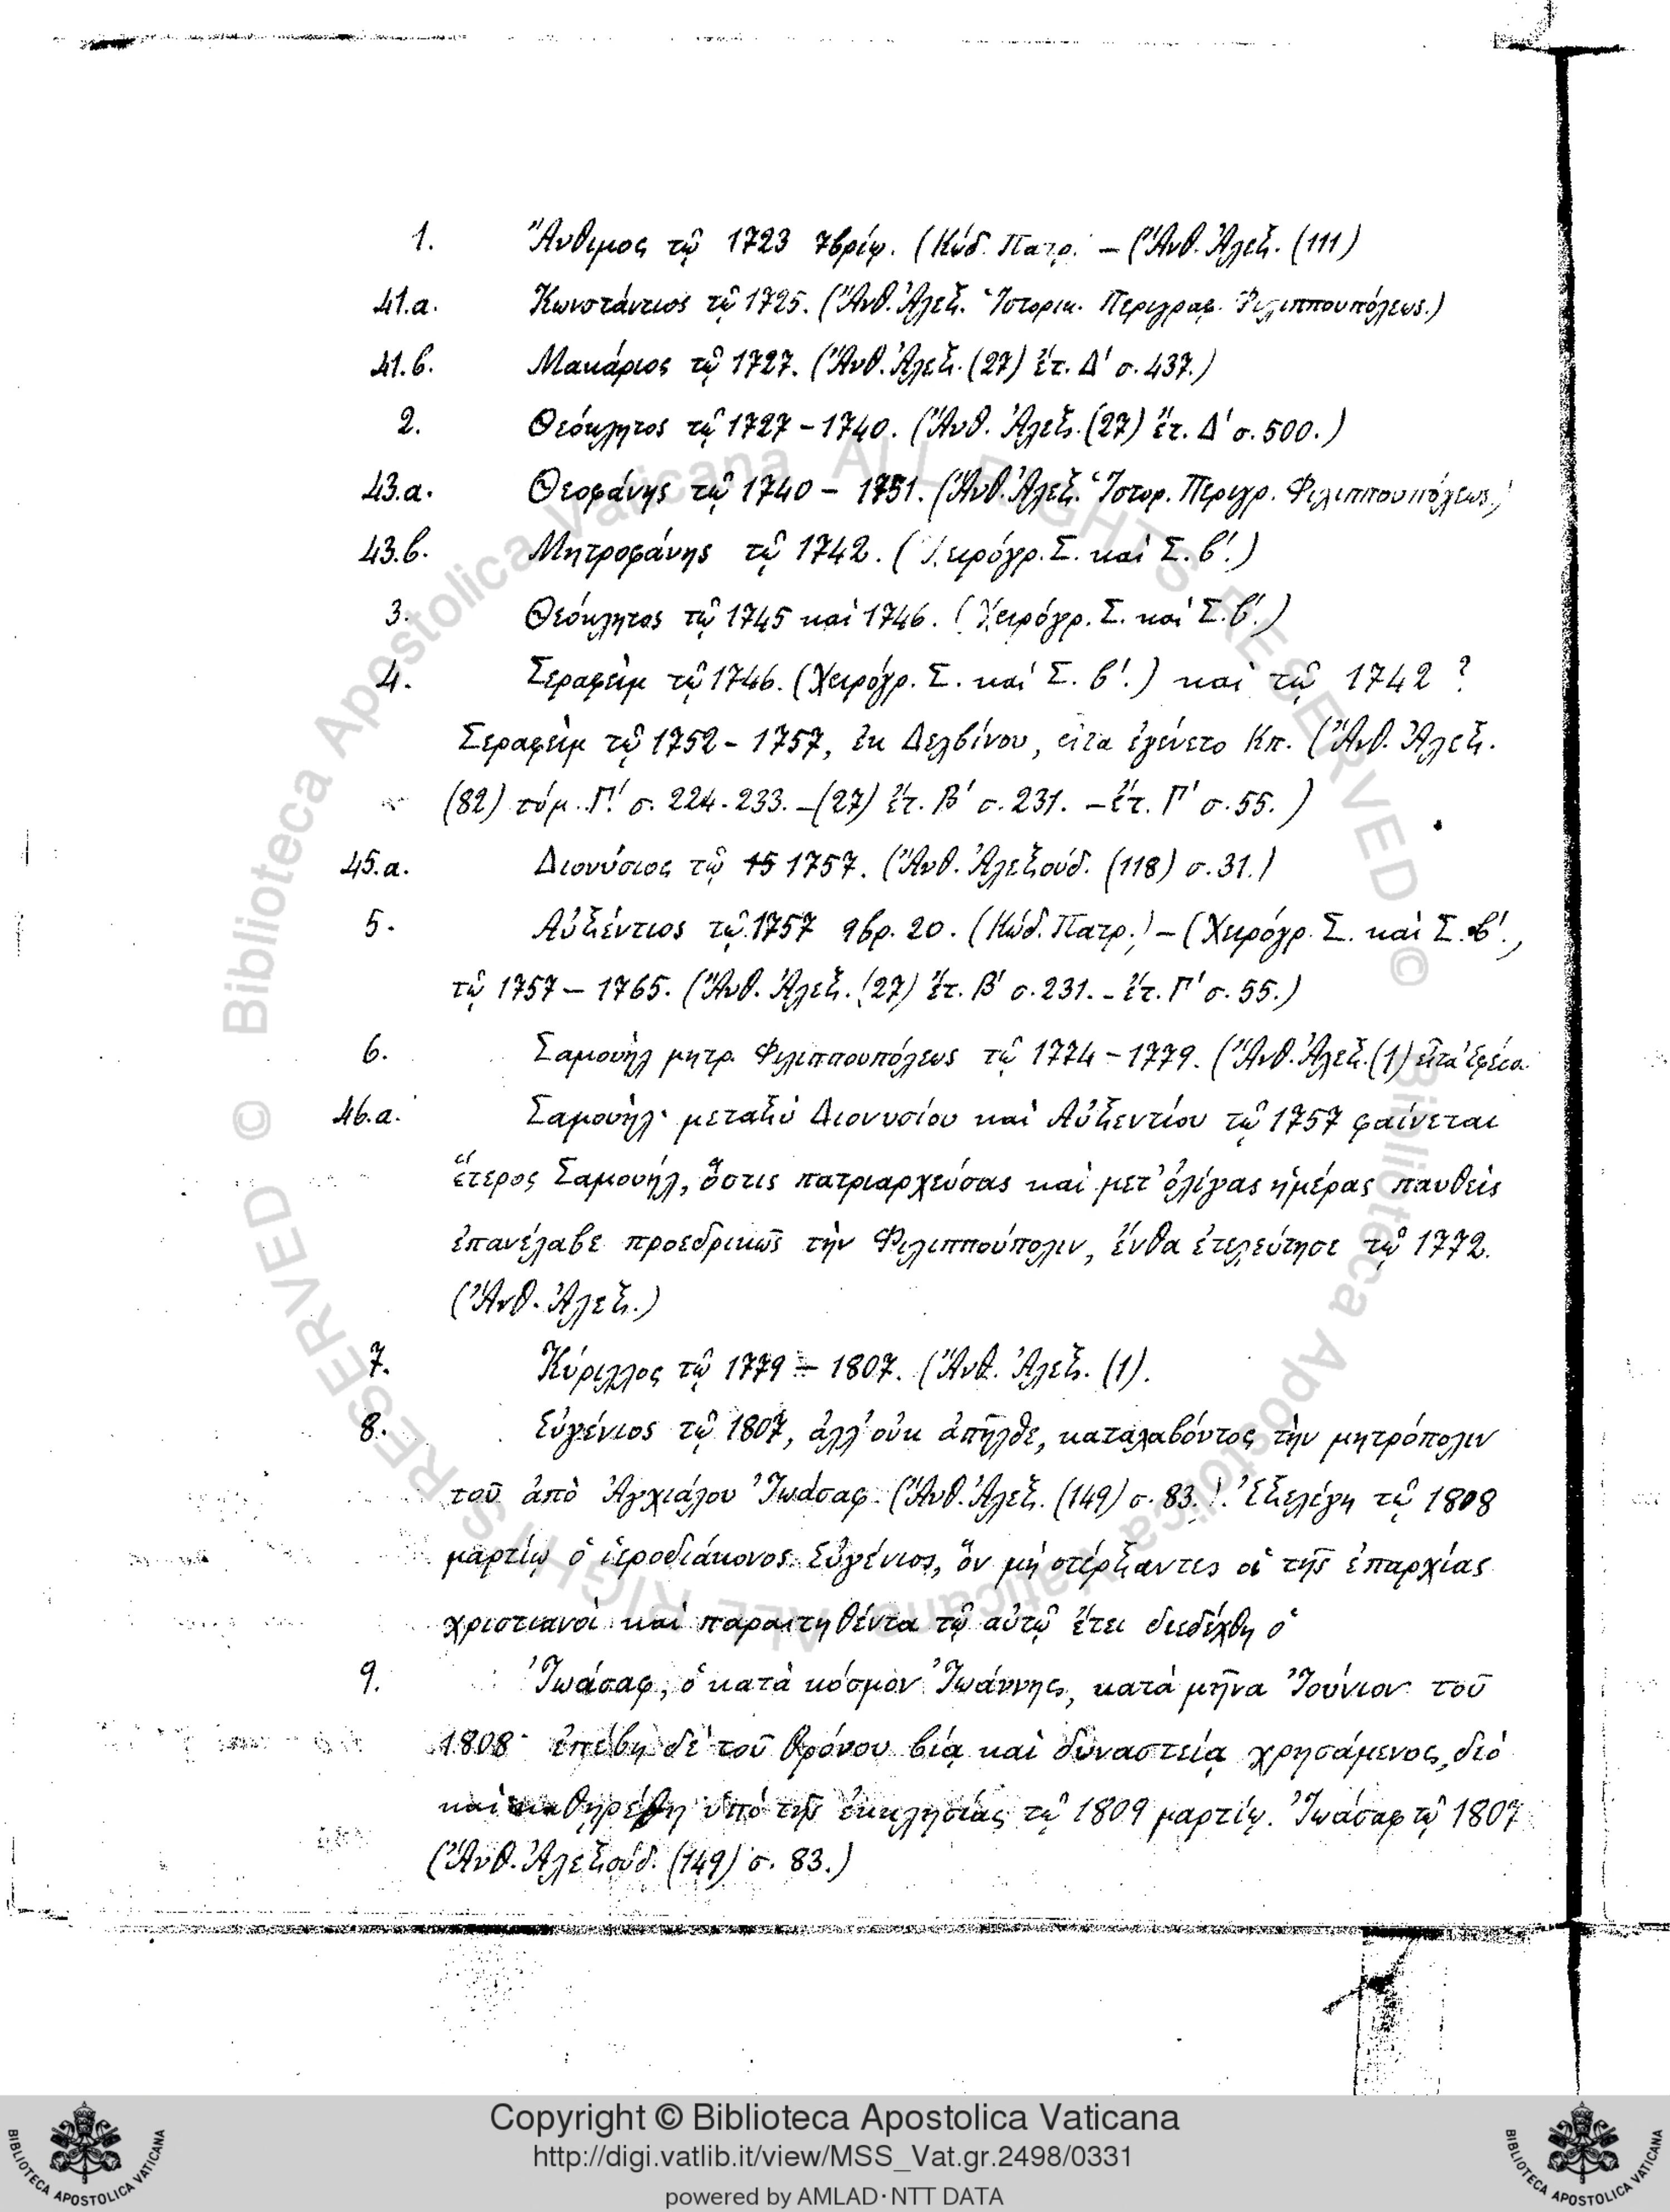 1. Ἄνθιμος τῷ 1723 7βρίῳ. (Κώδ. Πατρ. – (Ἄνθ. Ἀλεξ. (111)
41.α. Κωνστάντιος τῷ 1725. (Ἄνθ. Ἀλεξ. Ἱστορικ. Περιγραφ. Φιλιππουπόλεως.)
41.β. Μακάριος τῷ 1727. (Ἄνθ. Ἀλεξ. (27) ἔτ. Δ' σ. 437.)
2. Θεόκλητος τῷ 1727 – 1740. (Ἄνθ. Ἀλεξ. (27) ἔτ. Δ' σ. 500.)
43.α. Θεοφάνης τῷ 1740 – 1751. (Ἄνθ. Ἀλεξ. Ἱστορ. Περιγρ. Φιλιππουπόλεως.)
43.β. Μητροφάνης τῷ 1742. (Χειρόγρ. Σ. καὶ Σ. β'.)
3. Θεόκλητος τῷ 1745 καὶ 1746. (Χειρόγρ. Σ. καὶ Σ. β'.)
4. Σεραφεὶμ τῷ 1746. (Χειρόγρ. Σ. καὶ Σ. β'.) καὶ τῷ 1742 ?
Σεραφεὶμ τῷ 1752 – 1757, ἐκ Δελβίνου, εἶτα ἐγένετο Κπ. (Ἄνθ. Ἀλεξ.
(82) τόμ. Γ'. σ. 224. 233. – (27) ἔτ. Β' σ. 231. – ἔτ. Γ' σ. 55.)
45.α. Διονύσιος τῷ 15 1757. (Ἄνθ. Ἀλεξούδ. (118) σ. 31.)
5. Αὐξέντιος τῷ 1757 9βρ. 20. (Κώδ. Πατρ.) – (Χειρόγρ. Σ. καὶ Σ. β'.,
τῷ 1757 – 1765. (Ἄνθ. Ἀλεξ. (27) ἔτ. Β' σ. 231. – ἔτ. Γ' σ. 55.)
6. Σαμουὴλ μητρ. Φιλιππουπόλεως τῷ 1774 – 1779. (Ἄνθ. Ἀλεξ. (1) εἶτα Ἐφέσου
46.α. Σαμουὴλ· μεταξὺ Διονυσίου καὶ Αὐξεντίου τῷ 1757 φαίνεται
ἕτερος Σαμουὴλ, ὅστις πατριαρχεύσας καὶ μετ' ὀλίγας ἡμέρας παυθεὶς
ἐπανέλαβε προεδρικῶς τὴν Φιλιππούπολιν, ἔνθα ἐτελεύτησε τῷ 1772.
(Ἄνθ. Ἀλεξ.)
7. Κύριλλος τῷ 1779 – 1807. (Ἄνθ. Ἀλεξ. (1).
8. Εὐγένιος τῷ 1807, ἀλλ' οὐκ ἀπῆλθε, καταλαβόντος τὴν μητρόπολιν
τοῦ ἀπὸ Ἀγχιάλου Ἰωάσαφ. (Ἄνθ. Ἀλεξ. (149) σ. 83.). Ἐξελέγη τῷ 1808
μαρτίῳ ὁ ἱεροδιάκονος Εὐγένιος, ὃν μὴ στέρξαντες οἱ τῆς ἐπαρχίας
χριστιανοὶ καὶ παραιτηθέντα τῷ αὐτῷ ἔτει διεδέχθη ὁ
9. Ἰωάσαφ, ὁ κατὰ κόσμον Ἰωάννης, κατὰ μῆνα Ἰούνιον τοῦ
1808· ἐπέβη δὲ τοῦ θρόνου βίᾳ καὶ δυναστείᾳ χρησάμενος, διὸ
καὶ καθῃρέθη ὑπὸ τῆς ἐκκλησίας τῷ 1809 μαρτίῳ. Ἰωάσαφ τῷ 1807
(Ἄνθ. Ἀλεξούδ. (149) σ. 83.)
© Biblioteca Apostolica Vaticana ALL RIGHTS RESERVED
© Biblioteca Apostolica Vaticana ALL RIGHTS RESERVED
Copyright © Biblioteca Apostolica Vaticana
http://digi.vatlib.it/view/MSS_Vat.gr.2498/0331
powered by AMLAD·NTT DATA
BIBLIOTECA APOSTOLICA VATICANA
BIBLIOTECA APOSTOLICA VATICANA